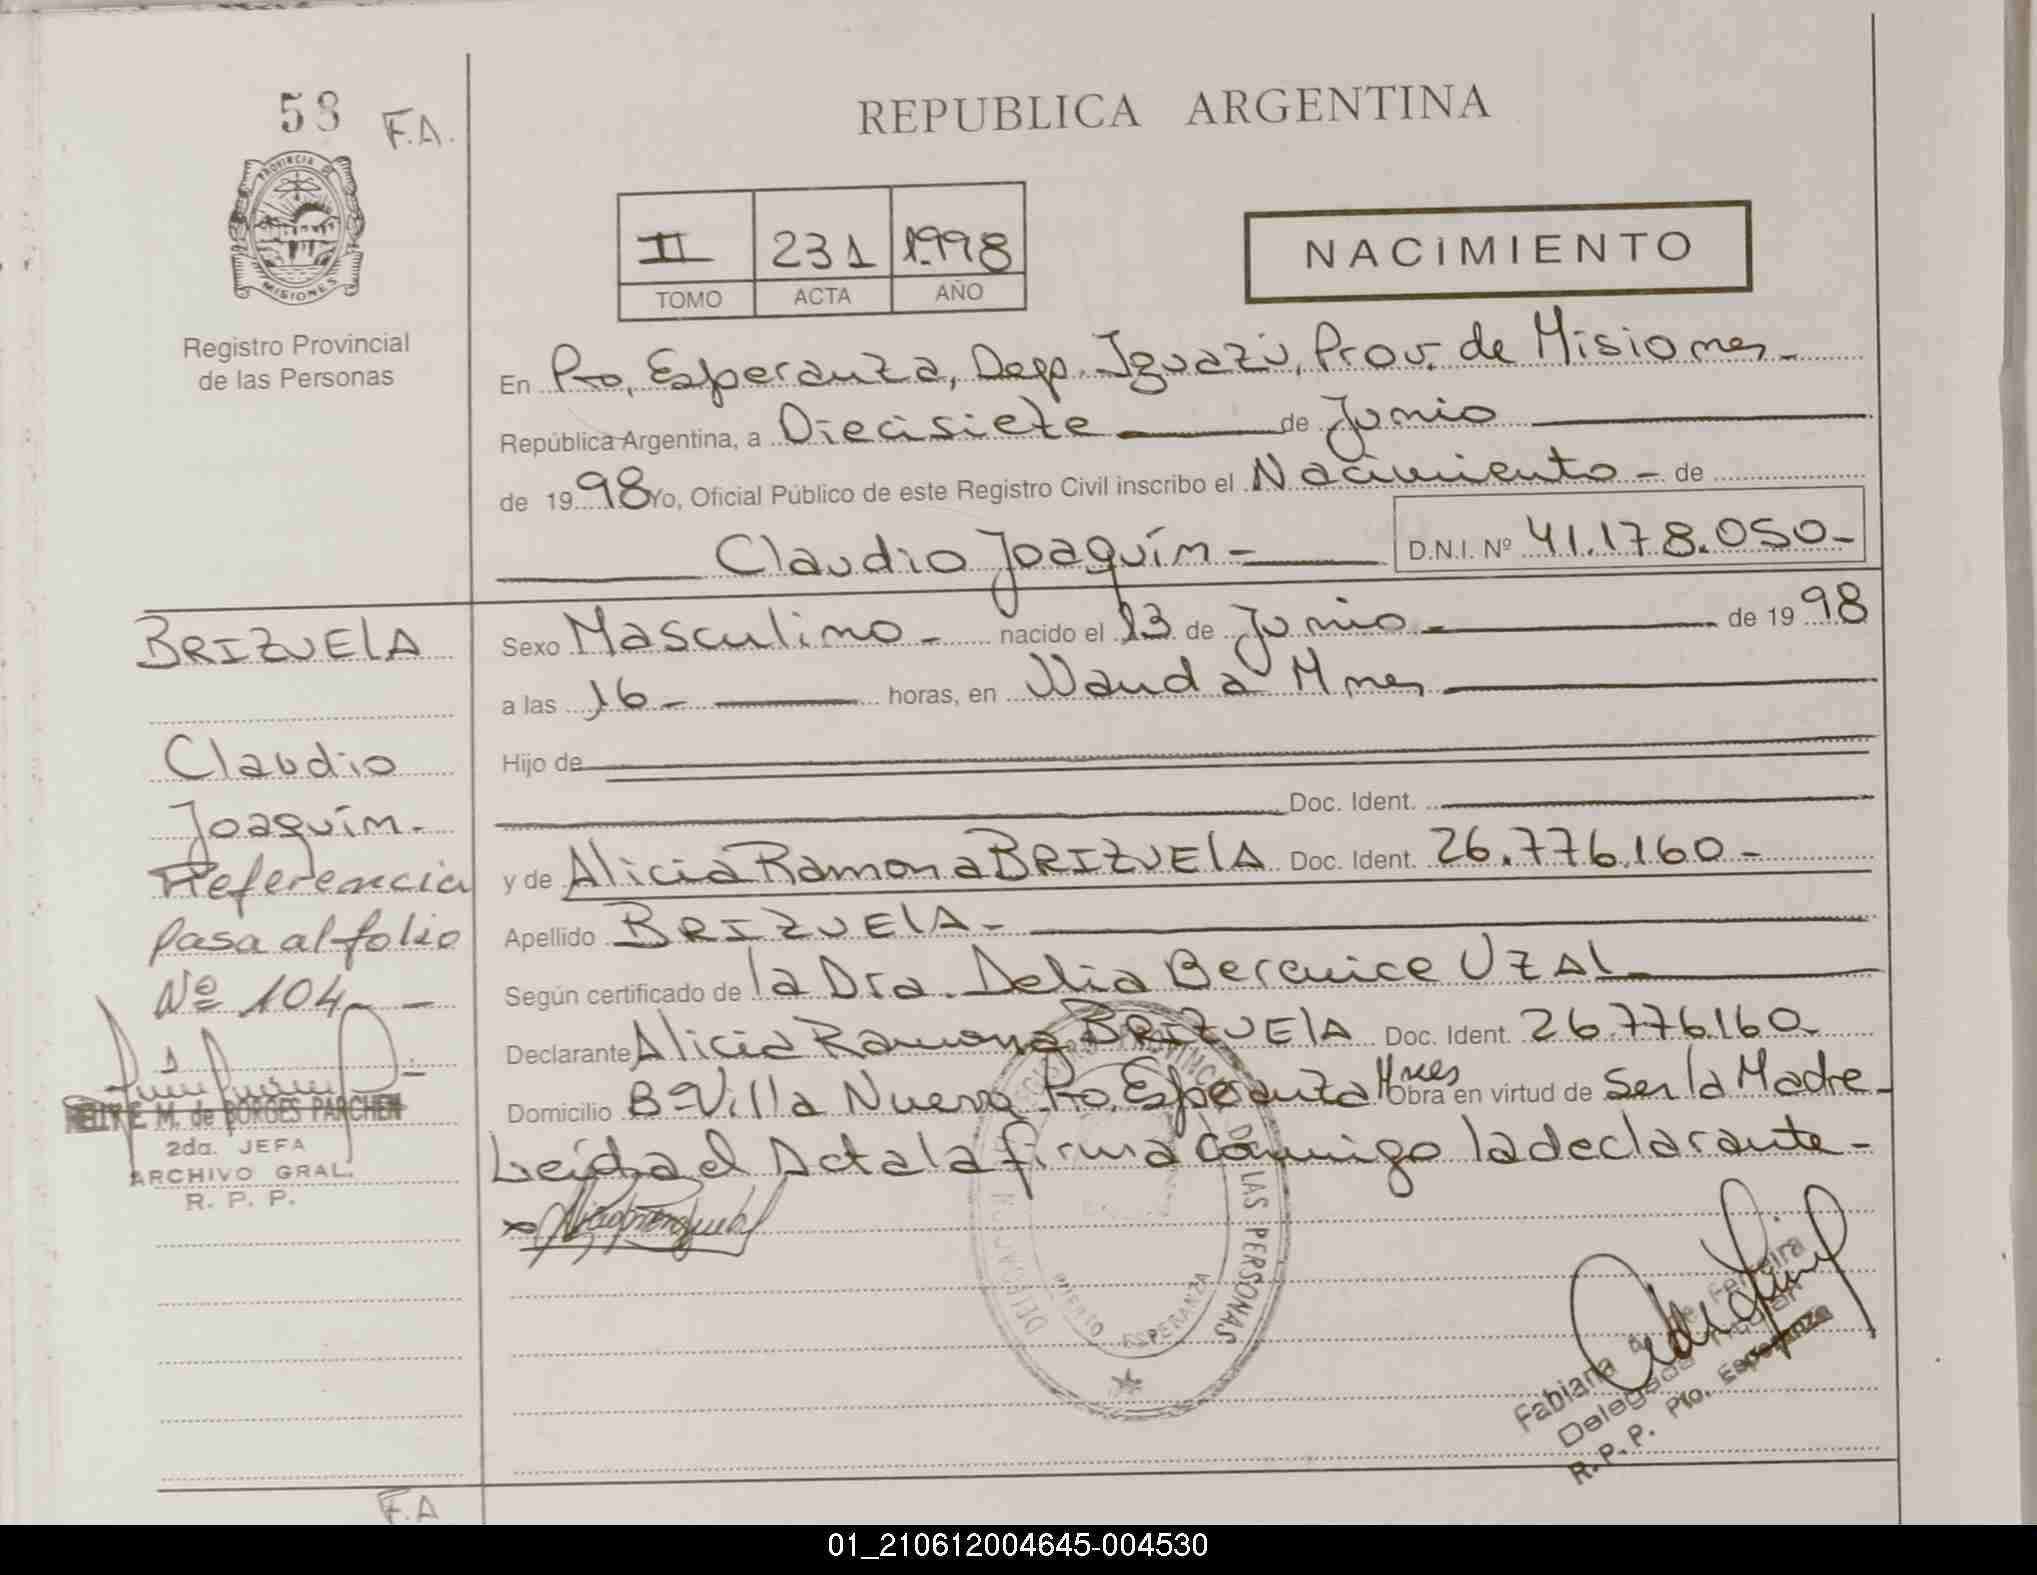 53 F.A.
PROVINCIA DE
MISIONES
Registro Provincial
de las Personas
REPUBLICA ARGENTINA
II 231 1.998
TOMO ACTA AÑO
NACIMIENTO
En Pto. Esperanza, Dep. Iguazú, Prov. de Misiones -
República Argentina, a Diecisiete de Junio
de 19 98 Yo, Oficial Público de este Registro Civil inscribo el Nacimiento - de
Claudio Joaquín - D.N.I. Nº 41.178.050-
BRIZUELA
Claudio
Joaquín.
Referencia
pasa al folio
Nº 104 - -
NELLY E. M. de BORGES PARCHEN
2da. JEFA
ARCHIVO GRAL.
R. P. P.
Sexo Masculino - nacido el 13 de Junio - de 19 98
a las 16 - horas, en Wanda Mnes
Hijo de
Doc. Ident.
y de Alicia Ramona BRIZUELA Doc. Ident. 26.776.160 -
Apellido BRIZUELA -
Según certificado de la Dra. Delia Berenice UZAL
Declarante Alicia Ramona BRIZUELA Doc. Ident. 26.776.160-
Domicilio Bº Villa Nueva Pto. Esperanza Mnes Obra en virtud de Ser la Madre -
Leída el Acta la firma conmigo la declarante -
DELEGACION
LAS PERSONAS
PUERTO ESPERANZA
Fabiana de Ferreira
Delegada Titular
R. P. P. Pto. Esperanza
F.A
01_210612004645-004530